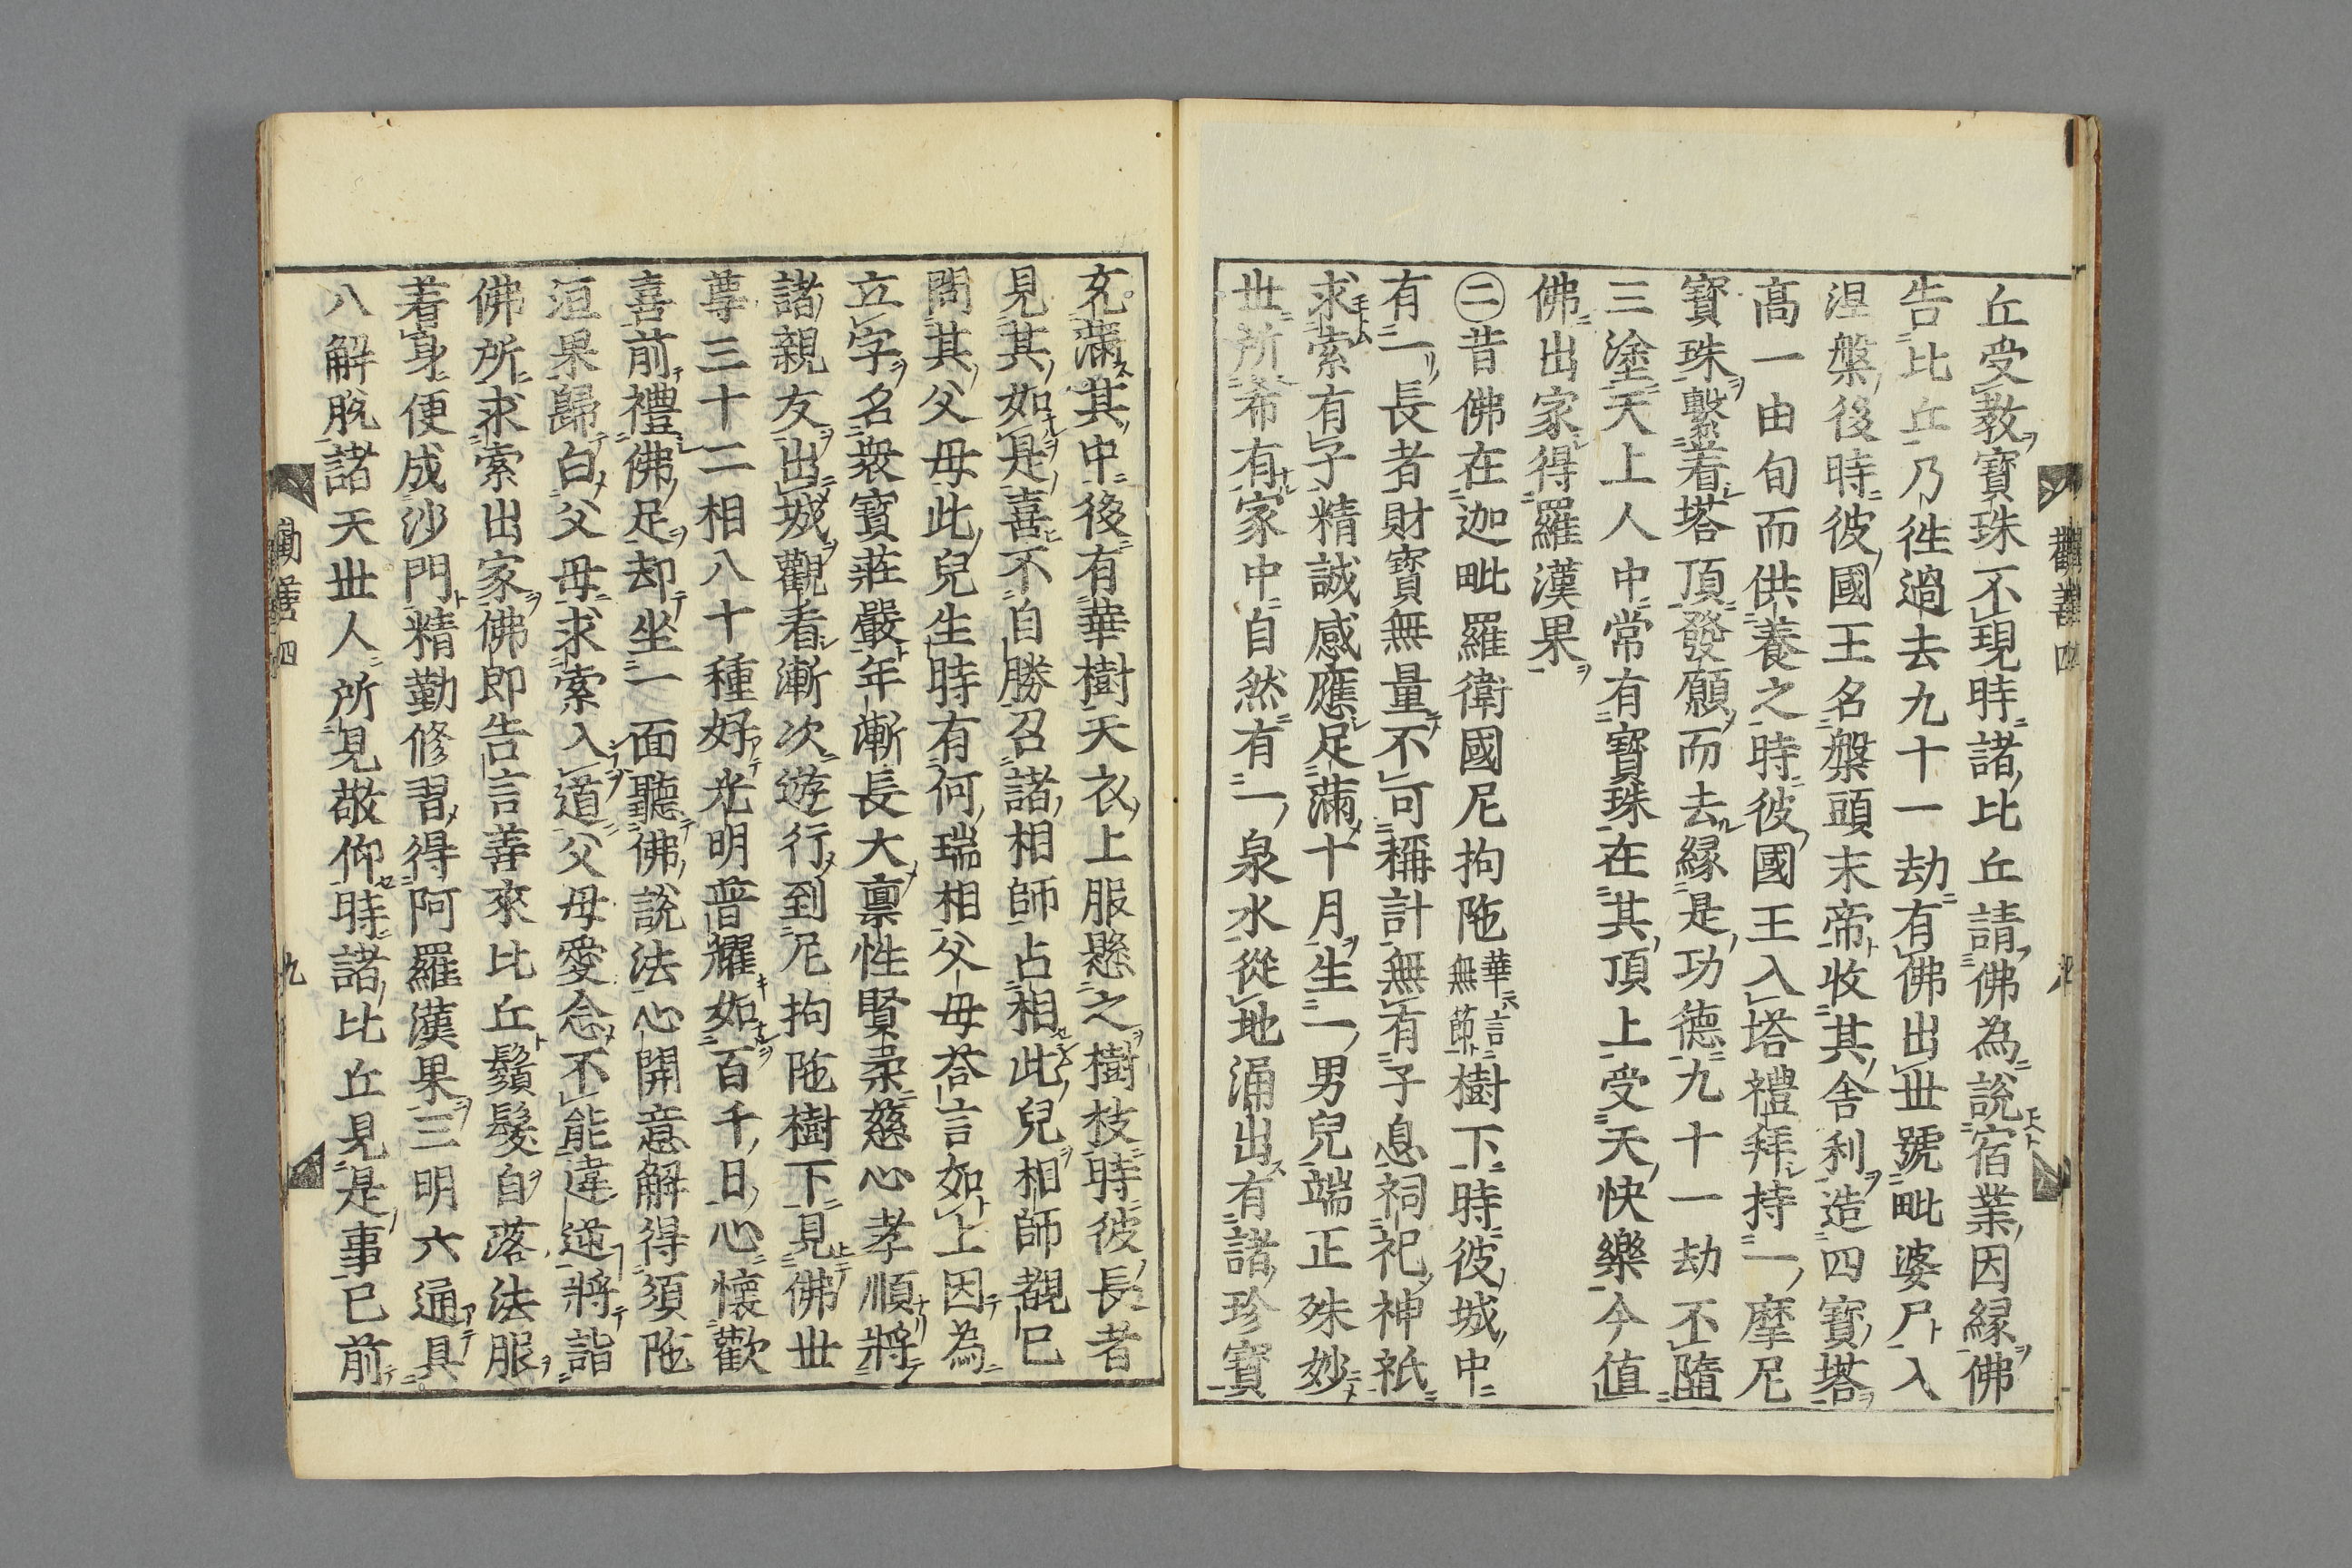 丘受教寶珠不現時諸比丘請佛為說宿業因緣佛
告比丘乃徃過去九十一劫有佛出世號毗婆尸入
涅槃後時彼國王名槃頭末帝收其舍利造四寶塔
高一由旬而供養之時彼國王入塔禮拜持一摩尼
寶珠繫著塔頂發願而去緣是功德九十一劫不隨
三塗天上人中常有寶珠在其頂上受天快樂今值
佛出家得羅漢果
㊁昔佛在迦毗羅衛國尼拘陁華言無節樹下時彼城中
有一長者財寶無量不可稱計無有子息祠祀神祇
求索有子精誠感應足滿十月生一男兒端正殊妙
世所希有家中自然有一泉水從地涌出有諸珍寶
充滿其中後有華樹天衣上服懸之樹枝時彼長者
見其如是喜不自勝召諸相師占相此兒相師覩已
問其父母此兒生時有何瑞相父母荅言如上因為
立字名衆寶莊嚴年漸長大禀性賢柔慈心孝順將
諸親友出城觀看漸次遊行到尼拘陁樹下見佛世
尊三十二相八十種好光明普耀如百千日心懷歡
喜前禮佛足却坐一面聽佛說法心開意解得須陁
洹果歸白父母求索入道父母愛念不能違逆將詣
佛所求索出家佛即告言善來比丘鬚髮自落法服
着身便成沙門精勤修習得阿羅漢果三明六通具
八解脫諸天世人所見敬仰時諸比丘見是事已前
勸善四
九